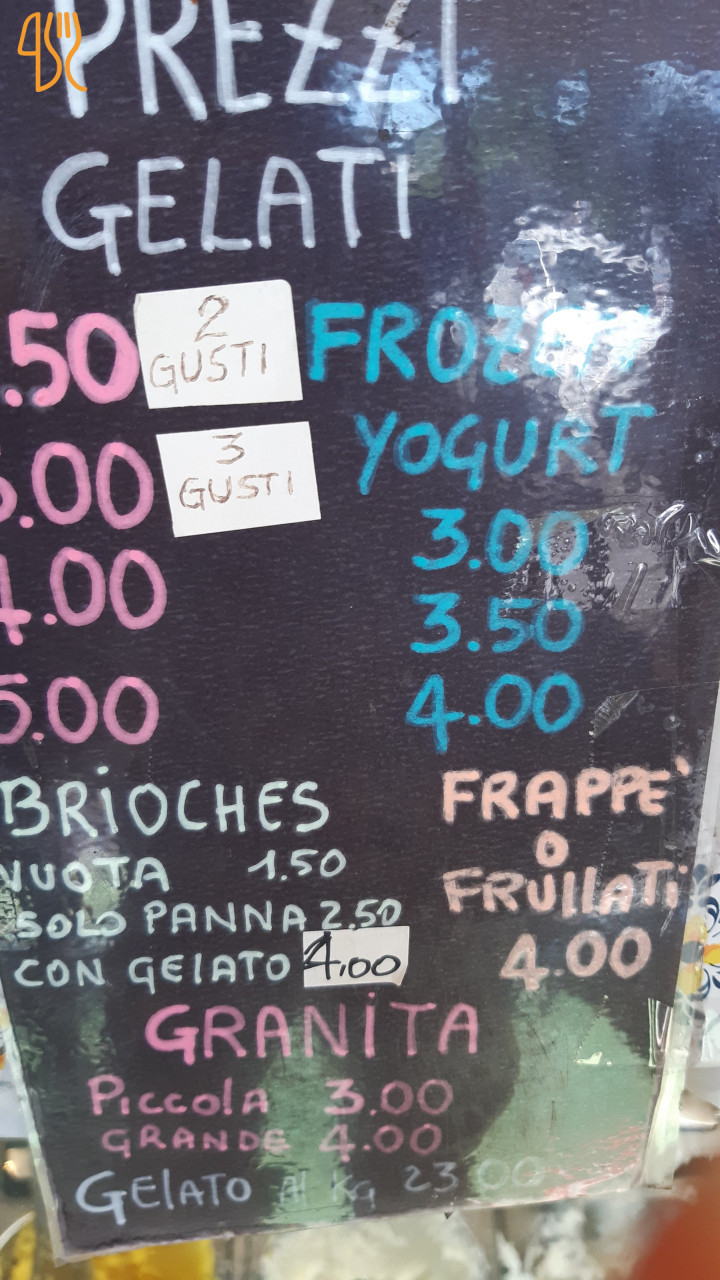 PREZZI
GELATI
.50 2 GUSTI
.00 3 GUSTI
4.00
5.00
FROZEN
YOGURT
3.00
3.50
4.00
BRIOCHES
VUOTA 1.50
SOLO PANNA 2.50
CON GELATO 4.00
FRAPPE'
O
FRULLATI
4.00
GRANITA
PICCOLA 3.00
GRANDE 4.00
GELATO Al Kg 23.00